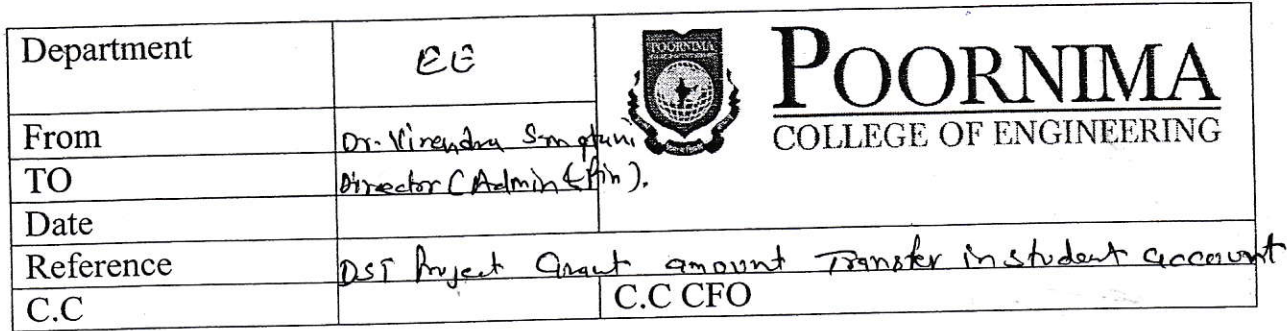 Department EE
POORNIMA
POORNIMA
COLLEGE OF ENGINEERING
From Dr. Virendra Sangtani
TO Director (Admin & Fin).
Date
Reference DST Project Grant amount Transfer in student account
C.C C.C CFO